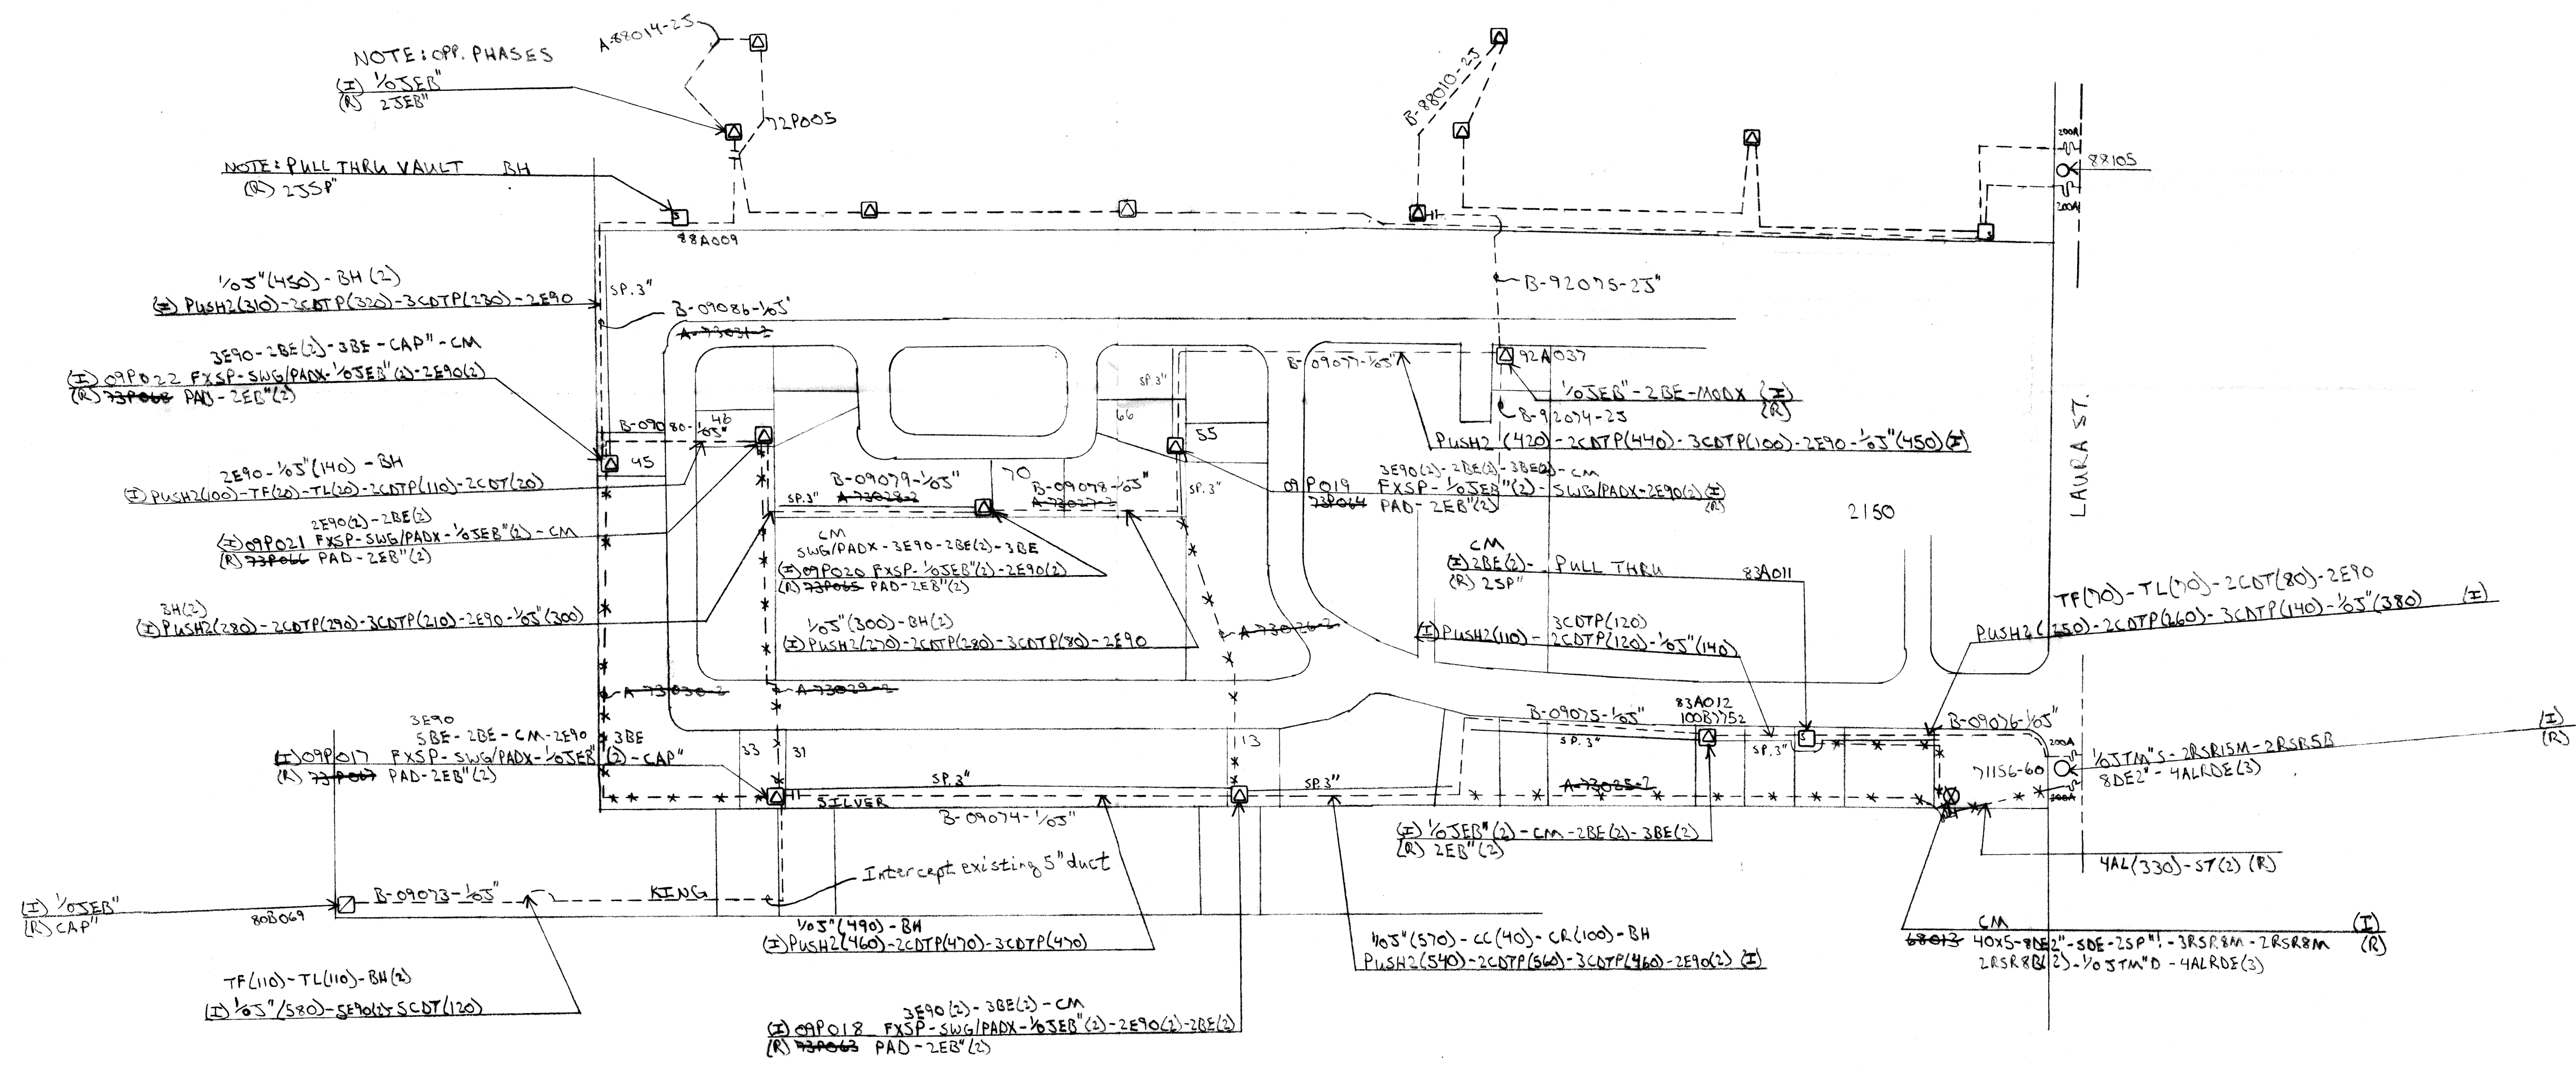 A-88014-2J
NOTE: OPP. PHASES
(I) 1/0JEB"
(R) 2JEB"
72P005
NOTE: PULL THRU VAULT BH
(R) 2JSP"
S
88A009
B-88010-2J
200A
88105
200A
1/0J"(450)-BH(2)
(I) PUSH2(310)-2CDTP(320)-3CDTP(230)-2E90
SP.3"
B-09086-1/0J"
A-73031-2
B-92075-2J"
3E90-2BE(2)-3BE-CAP"-CM
(I) 09P022 FXSP-SWG/PADX-1/0JEB"(2)-2E90(2)
(R) 73P068 PAD-2EB"(2)
B-09077-1/0J"
92A037
SP.3"
1/0JEB"-2BE-MODX (I)
(R)
B-92074-2J
PUSH2(420)-2CDTP(440)-3CDTP(100)-2E90-1/0J"(450)(I)
B-09080-1/0J"
46
45
66
55
2E90-1/0J"(140)-BH
(I) PUSH2(100)-TF(20)-TL(20)-2CDTP(110)-2CDT(20)
B-09079-1/0J"
A-73028-2
SP.3"
70
B-09078-1/0J"
A-73027-2
SP.3"
09P019
73P064
3E90(2)-2BE(2)-3BE(2)-CM
FXSP-1/0JEB"(2)-SWG/PADX-2E90(2)(I)
PAD-2EB"(2) (R)
2150
LAURA ST.
2E90(2)-2BE(2)
(I) 09P021 FXSP-SWG/PADX-1/0JEB"(2)-CM
(R) 73P066 PAD-2EB"(2)
CM
SWG/PADX-3E90-2BE(2)-3BE
(I) 09P020 FXSP-1/0JEB"(2)-2E90(2)
(R) 73P065 PAD-2EB"(2)
CM
(I) 2BE(2)- PULL THRU 83A011
(R) 2SP"
TF(70)-TL(70)-2CDT(80)-2E90
PUSH2(250)-2CDTP(260)-3CDTP(140)-1/0J"(380) (I)
BH(2)
(I) PUSH2(280)-2CDTP(290)-3CDTP(210)-2E90-1/0J"(300)
1/0J"(300)-BH(2)
(I) PUSH2(270)-2CDTP(280)-3CDTP(80)-2E90
A-73026-2
3CDTP(120)
(I) PUSH2(110)-2CDTP(120)-1/0J"(140)
A-73030-2
A-73029-2
3E90
5BE-2BE-CM-2E90 3BE
(I) 09P017 FXSP-SWG/PADX-1/0JEB"(2)-CAP"
(R) 73P067 PAD-2EB"(2)
33
31
113
B-09075-1/0J"
SP.3"
83A012
100B7752
SP.3"
S
B-09076-1/0J"
200A
71156-60
200A
(I)
(R)
1/0JTM"S-2RSR15M-2RSR5B
8DE2"-4ALRDE(3)
SILVER
SP.3"
B-09074-1/0J"
SP.3"
A-73025-2
(I) 1/0JEB"(2)-CM-2BE(2)-3BE(2)
(R) 2EB"(2)
4AL(330)-ST(2) (R)
Intercept existing 5" duct
(I) 1/0JEB"
(R) CAP"
80B069
B-09073-1/0J"
KING
1/0J"(490)-BH
(I) PUSH2(460)-2CDTP(470)-3CDTP(470)
1/0J"(570)-CC(40)-CR(100)-BH
PUSH2(540)-2CDTP(560)-3CDTP(460)-2E90(2) (I)
CM (I)
68013 40X5-8DE2"-5DE-2SP"!-3RSR8M-2RSR8M (R)
2RSR8B(2)-1/0JTM"D-4ALRDE(3)
TF(110)-TL(110)-BH(2)
(I) 1/0J"(580)-5E90(2)-5CDT(120)
3E90(2)-3BE(2)-CM
(I) 09P018 FXSP-SWG/PADX-1/0JEB"(2)-2E90(2)-2BE(2)
(R) 73P063 PAD-2EB"(2)